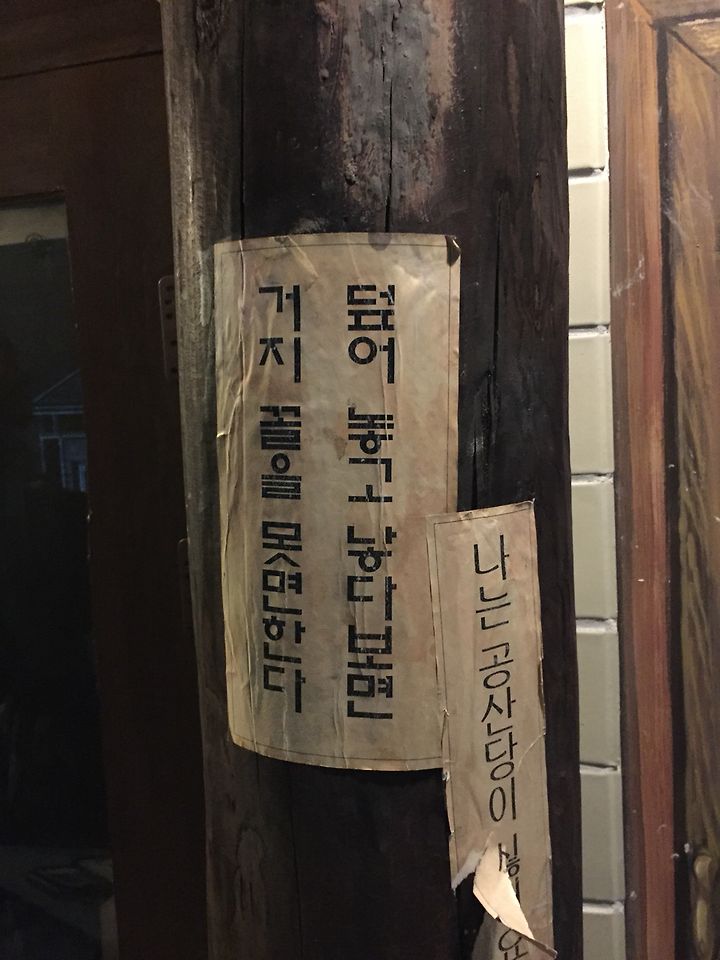 덮어 놓고 낳다보면
거지 꼴을 못면한다
나는 공산당이 싫어요